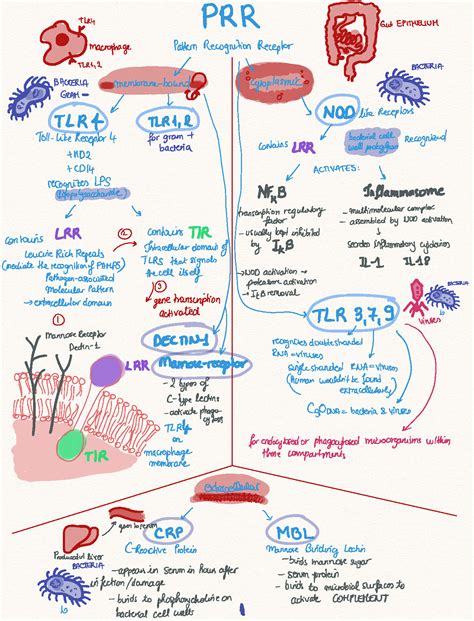 PRR
Pattern Recognition Receptor
TLR4
TLR1,2
Macrophage
GUT EPITHELIUM
BACTERIA
GRAM -
membrane-bound
Cytoplasmic
BACTERIA
TLR4
Toll-like Receptor 4
+ MD2
+ CD14
recognizes LPS
TLR1,2
for gram +
bacteria
NOD like Receptors
contains LRR
bacterial cell
wall
Recognized
ACTIVATES:
NFκB
transcription regulatory
factor
- usually kept inhibited
by IκB
- NOD activation →
proteasom activation
→ IκB removal
Inflammasome
- multimolecular complex
- assembled by NOD activation
→ Secretes Inflammatory cytokines
IL-1 IL18
contains
LRR
Leucine Rich Repeats
(mediate the recognition of PAMPS)
Pathogen-associated
Molecular Pattern
→ extracellular domain
2
contains TIR
Intracellular domain of
TLRS that signals
the cell itself
3
gene transcription
activated
1
Mannose Receptor
Dectin-1
LRR
TIR
DECTIN1
Mannose-receptor
- 2 types of
C-type lectins
- activate phago-
cytosis
TLR4
on
macrophage
membrane
TLR 3,7,9
BACTERIA
viruses
recognizes double stranded
RNA = viruses
single stranded RNA = viruses
(human wouldn't be found
extracellularly)
= bacteria & viruses
for endocytosed or phagocytosed microorganisms within
these compartments
Extracellular
Produced by liver
BACTERIA
CRP
C-Reactive Protein
- appear in serum in hours after
infection/damage
- binds to phosphocholine on
bacterial cell walls
MBL
Mannose Binding Lectin
- binds mannose sugar
- serum protein
- binds to microbial surfaces to
activate COMPLEMENT
BACTERIA